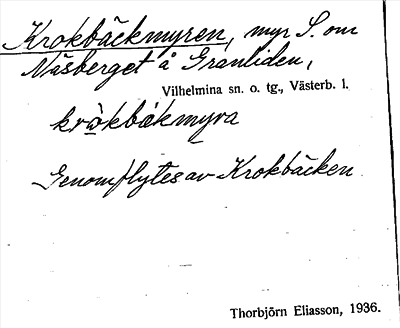 Krokbäckmyren, myr S. om
Näsberget å Granliden,
Vilhelmina sn. o. tg., Västerb. l.
kròkbäkmyra
Genomflytes av Krokbäcken
Thorbjörn Eliasson, 1936.